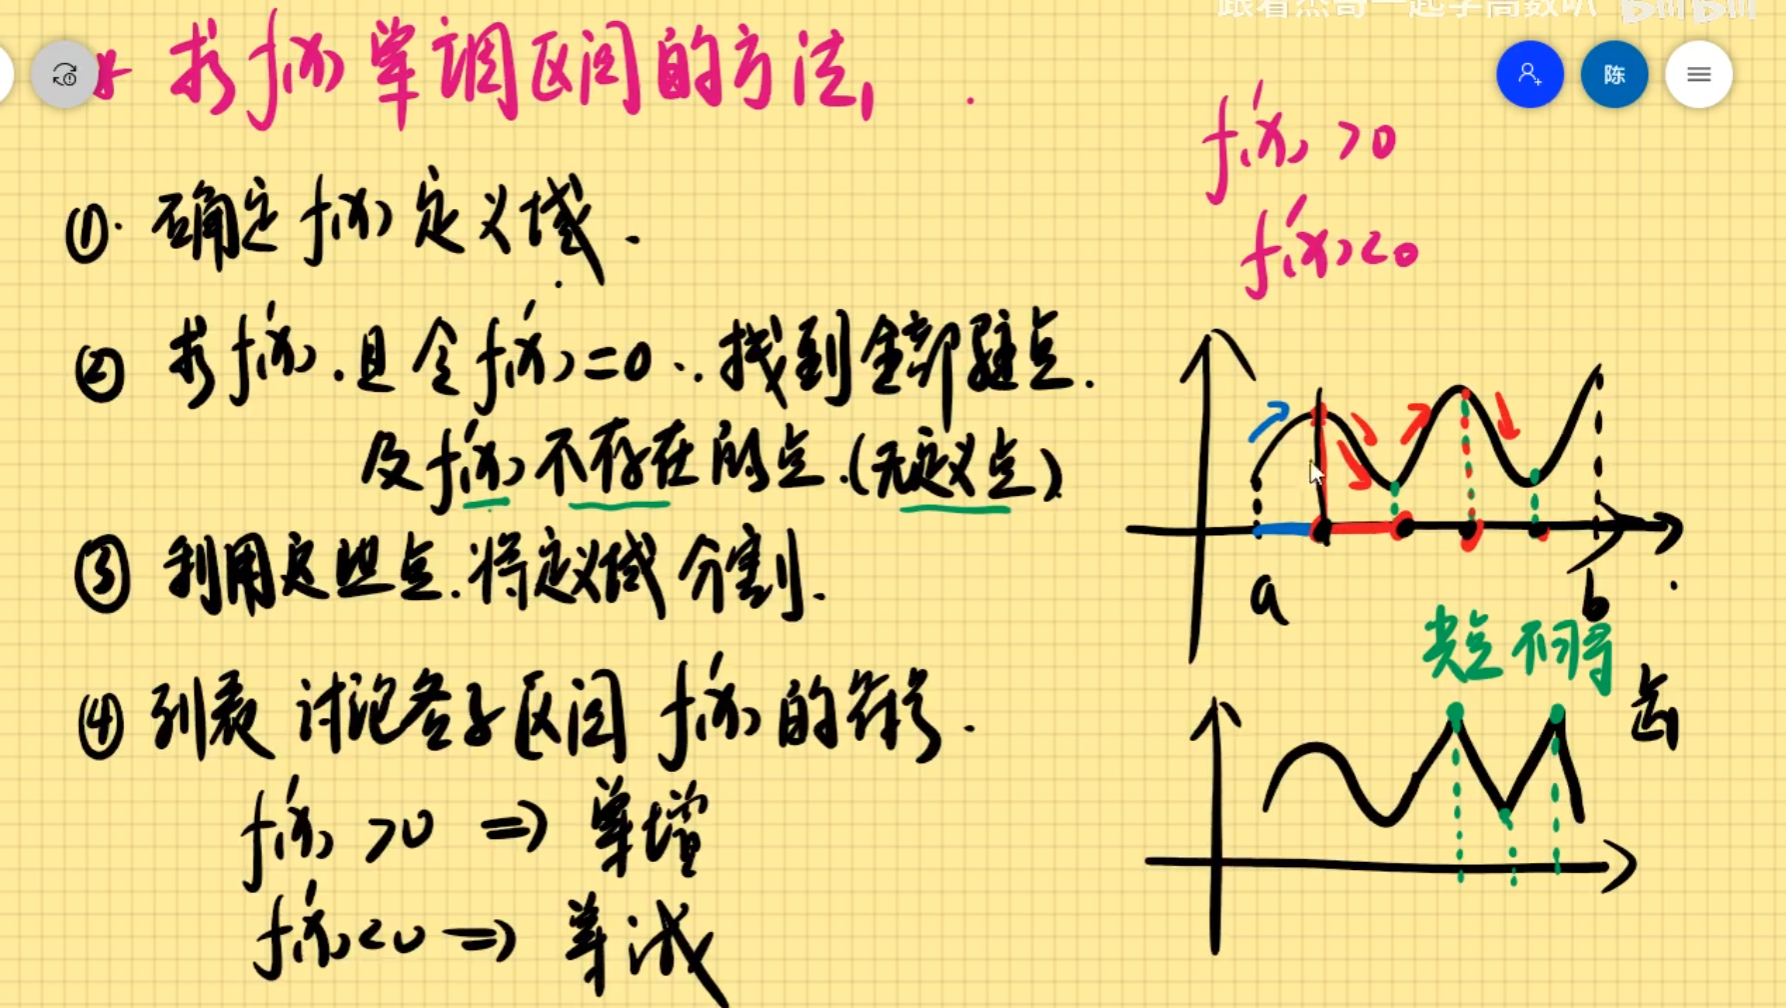 跟着杰哥一起学高数叭 bilibili
陈
* 求f(x)单调区间的方法,
f'(x)>0
f'(x)<0
①. 确定f(x)定义域.
② 求f'(x).且令f'(x)=0.. 找到全部驻点.
及f'(x)不存在的点.(无定义点)
③ 利用这些点.将定义域分割.
④ 列表 讨论各子区间 f'(x)的符号.
f'(x)>0 => 单增
f'(x)<0 => 单减
a
b
尖点不可导
点